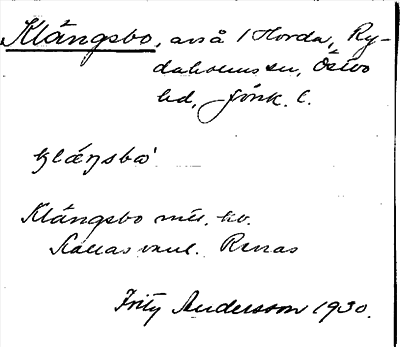 Klängsbo, avs å 1 Horda, Ry-
daholms sn, Östbo
hd, Jönk. l.
klæŋsbo
Klängsbo mtl. kv.
Kallas vanl. Renas
Frity Andersson 1930.